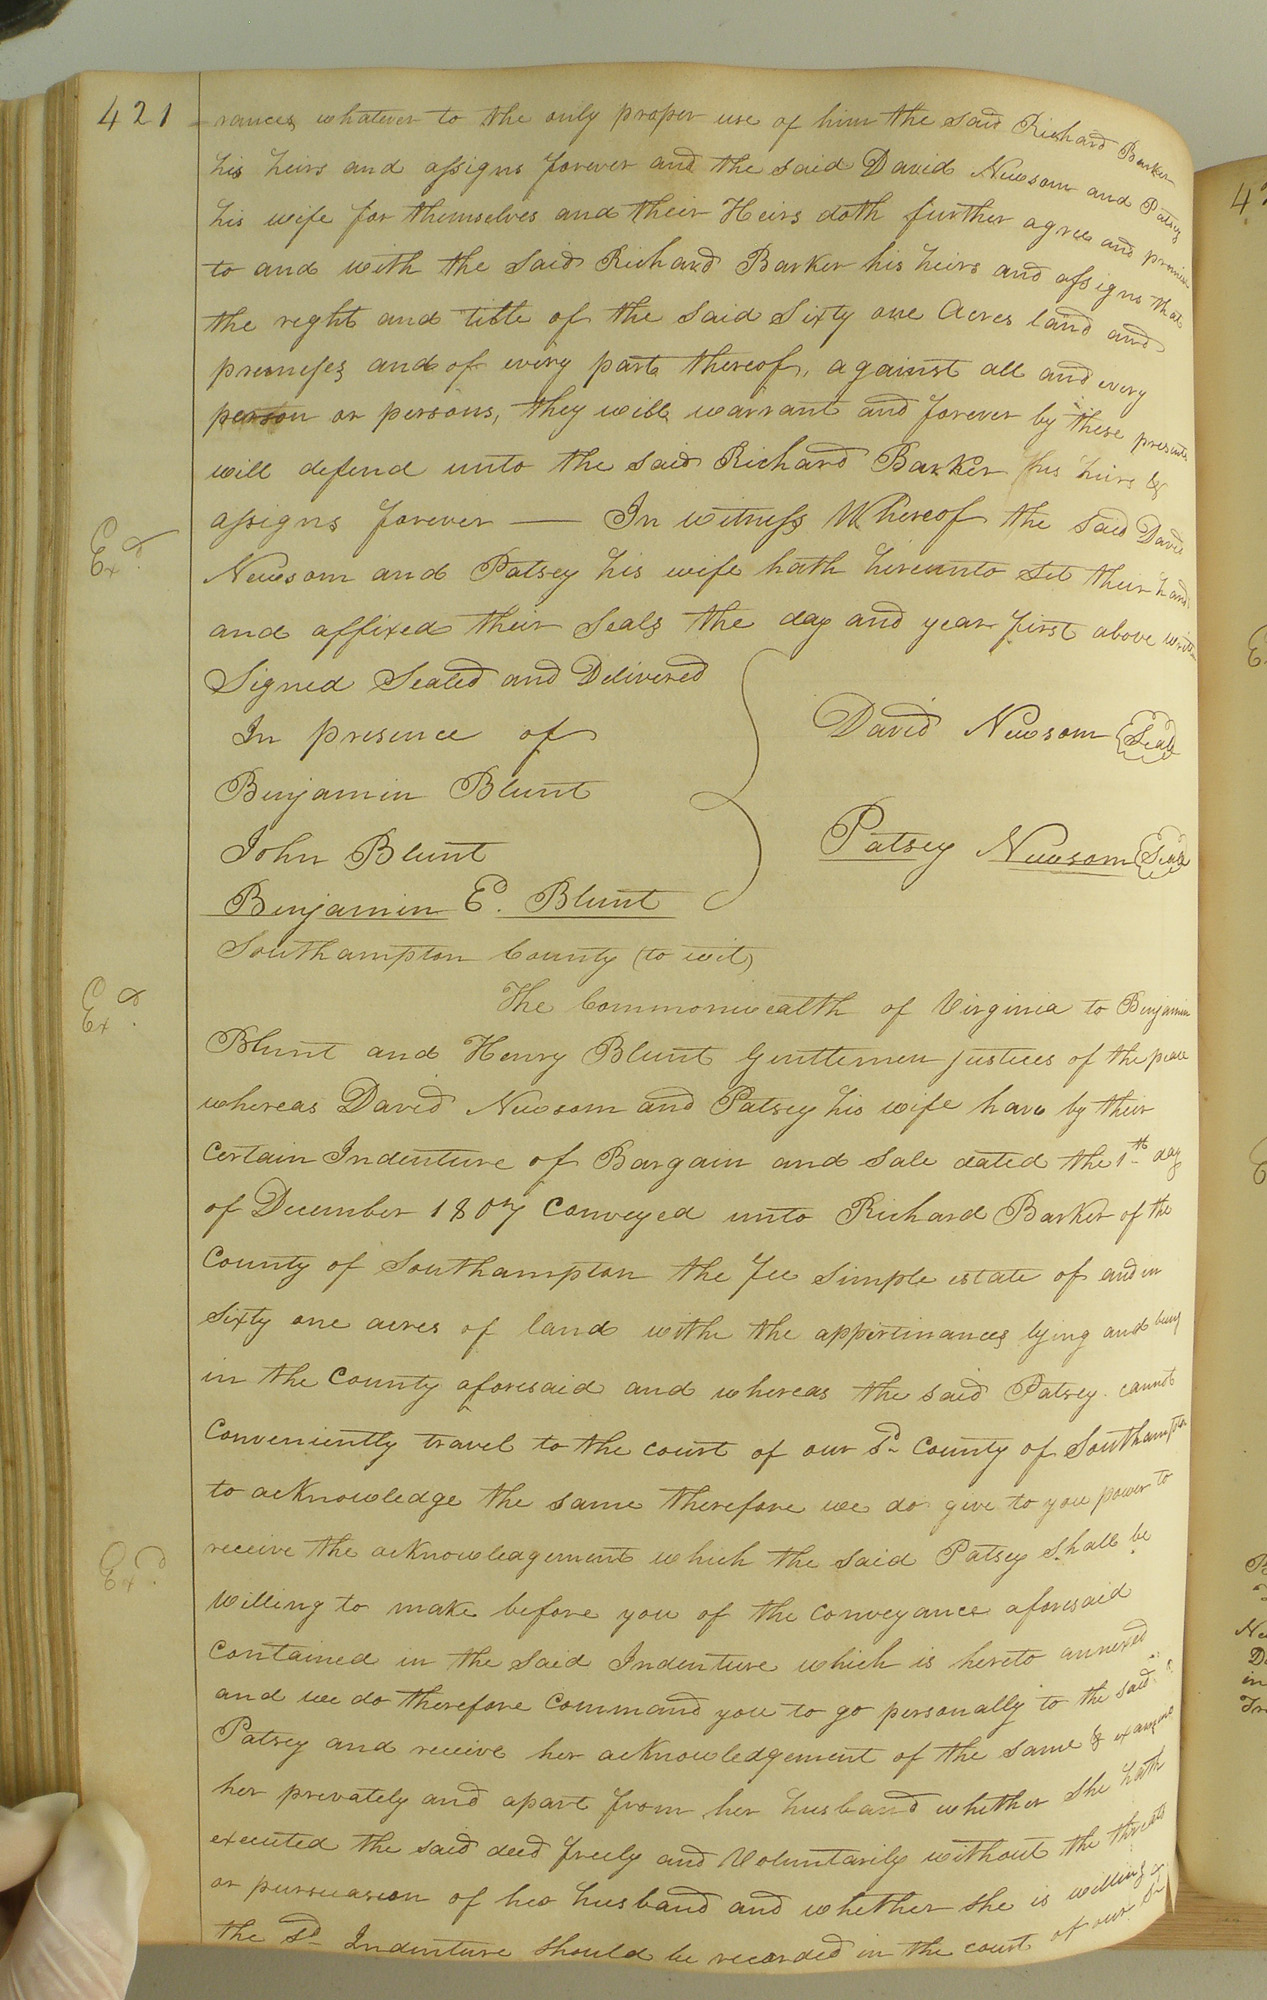 421
-rances whatever to the only proper use of him the said Richard Barker
his heirs and assigns forever and the said David Newsom and Patsey
his wife for themselves and their Heirs doth further agree and promise
to and with the said Richard Barker his heirs and assigns that
the right and title of the said Sixty one Acres land and
premises and of every part thereof, against all and every
person or persons, they will warrant and forever by these presents
will defend unto the said Richard Barker his heirs &
assigns forever — In witness Whereof the said David
Exd.
Newsom and Patsey his wife hath hereunto set their hand
and affixed their Seals the day and year first above written
Signed Sealed and Delivered
In presence of
David Newsom Seal
Benjamin Blunt
John Blunt
Patsey Newsom Seal
Benjamin E. Blunt
Southampton County (to wit)
Exd.
The Commonwealth of Virginia to Benjamin
Blunt and Henry Blunt Gentlemen Justices of the peace
whereas David Newsom and Patsey his wife have by their
certain Indenture of Bargain and Sale dated the 1th day
of December 1807 conveyed unto Richard Barker of the
County of Southampton the Fee simple estate of and in
Sixty one acres of land withe the appertinances lying and being
in the County aforesaid and whereas the said Patsey cannot
conveniently travel to the court of our sd County of Southampton
to acknowledge the same therefore we do give to you power to
receive the acknowledgement which the said Patsey shall be
Exd.
willing to make before you of the conveyance aforesaid
contained in the said Indenture which is hereto annexed
and we do therefore command you to go personally to the said
Patsey and receive her acknowledgement of the same & examine
her prevately and apart from her husband whether she hath
executed the said deed freely and Voluntarily without the threats
or pursuasion of her husband and whether she is willing
the sd Indenture should be recorded in the court of our sd